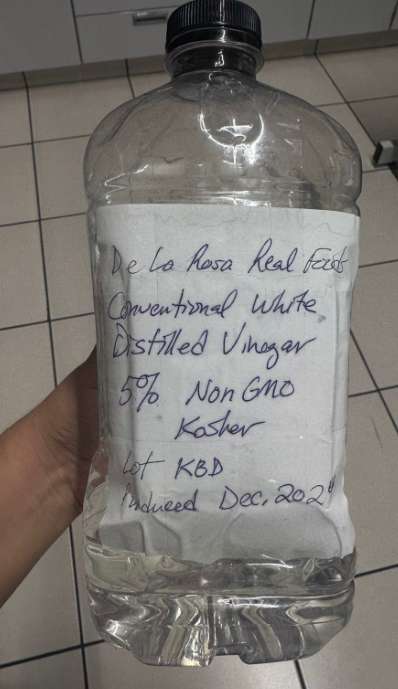 De La Rosa Real Foods
Conventional White
Distilled Vinegar
5% Non GMO
Kosher
Lot KBD
Produced Dec. 2024